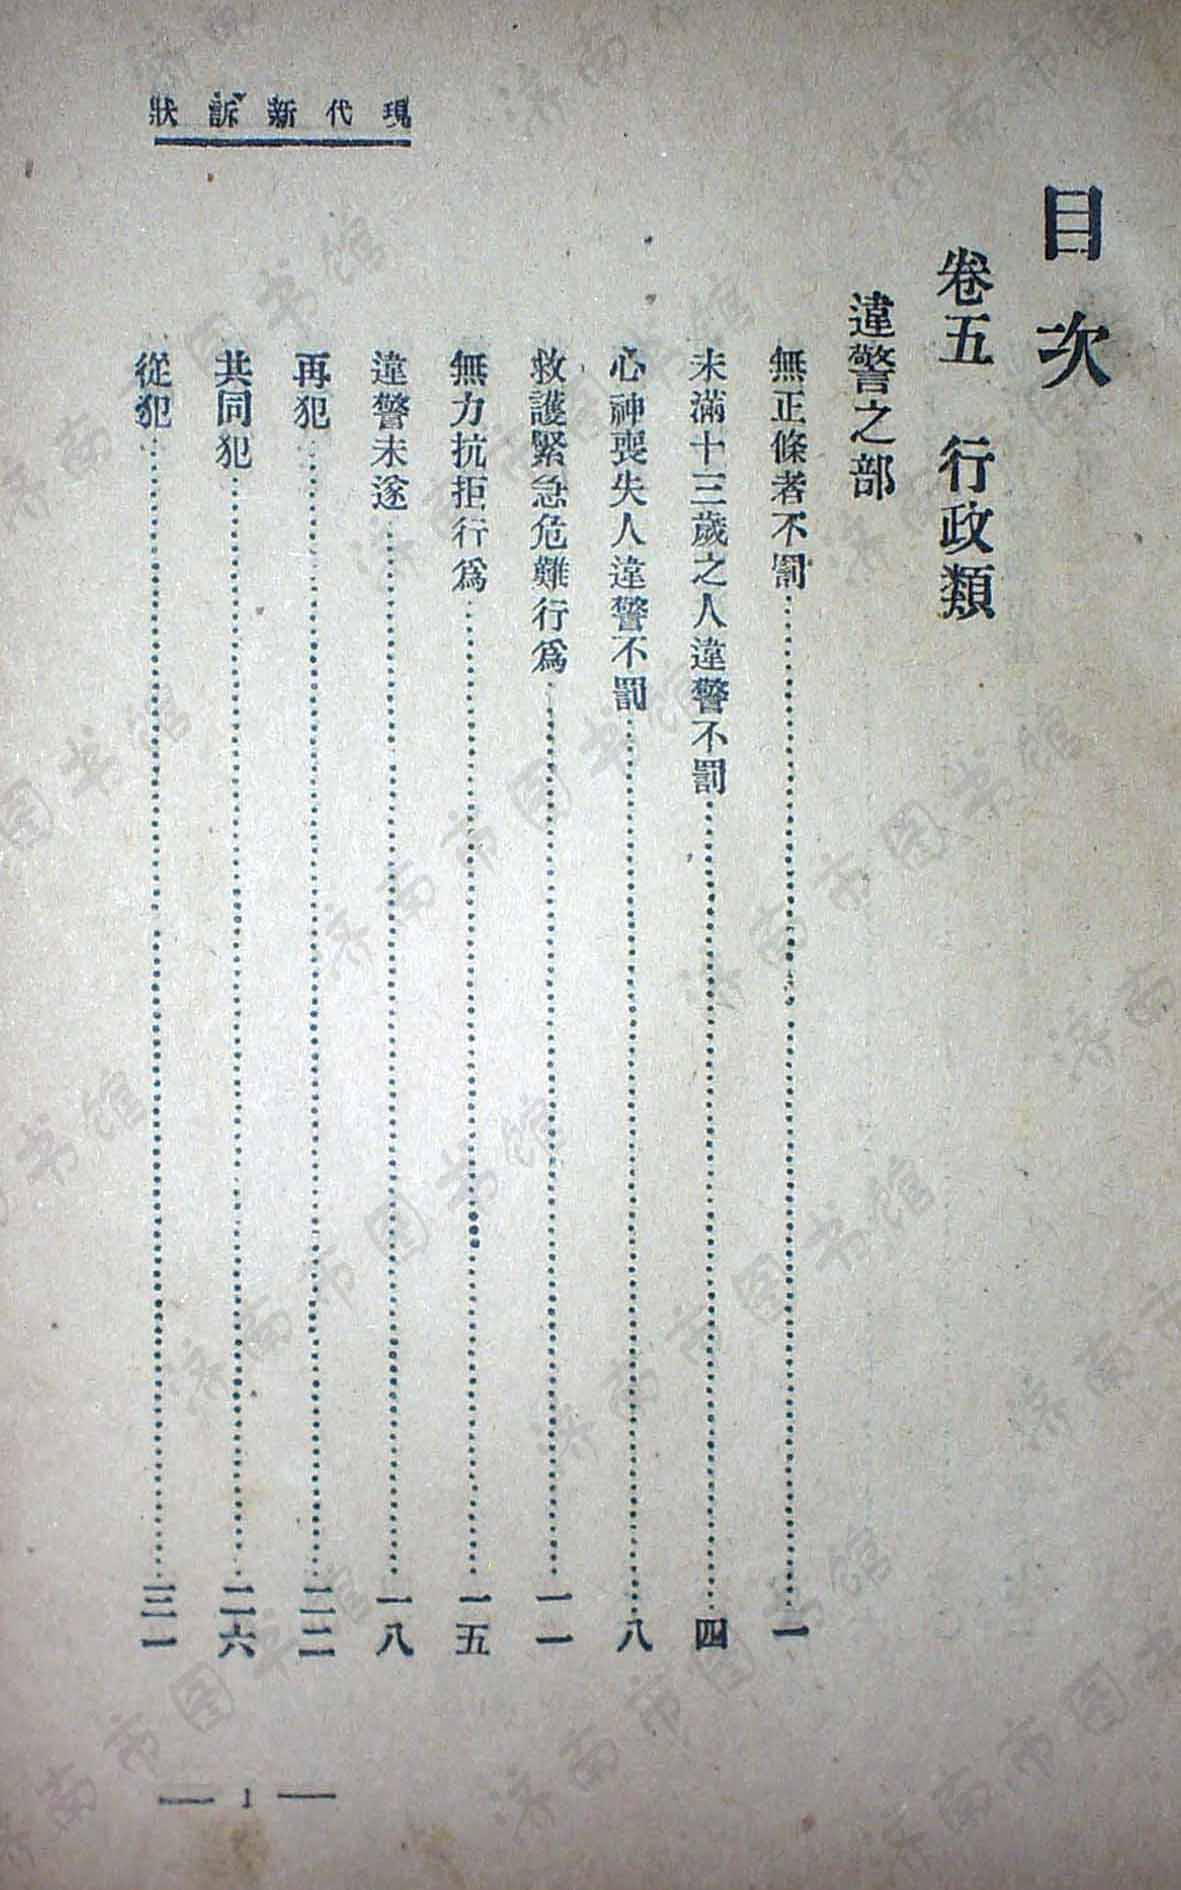 現代新訴狀
目次
卷五 行政類
違警之部
無正條者不罰……一
未滿十三歲之人違警不罰……四
心神喪失人違警不罰……八
救護緊急危難行爲……一一
無力抗拒行爲……一五
違警未遂……一八
再犯……二二
共同犯……二六
從犯……三一
— 1 —
济南市图书馆